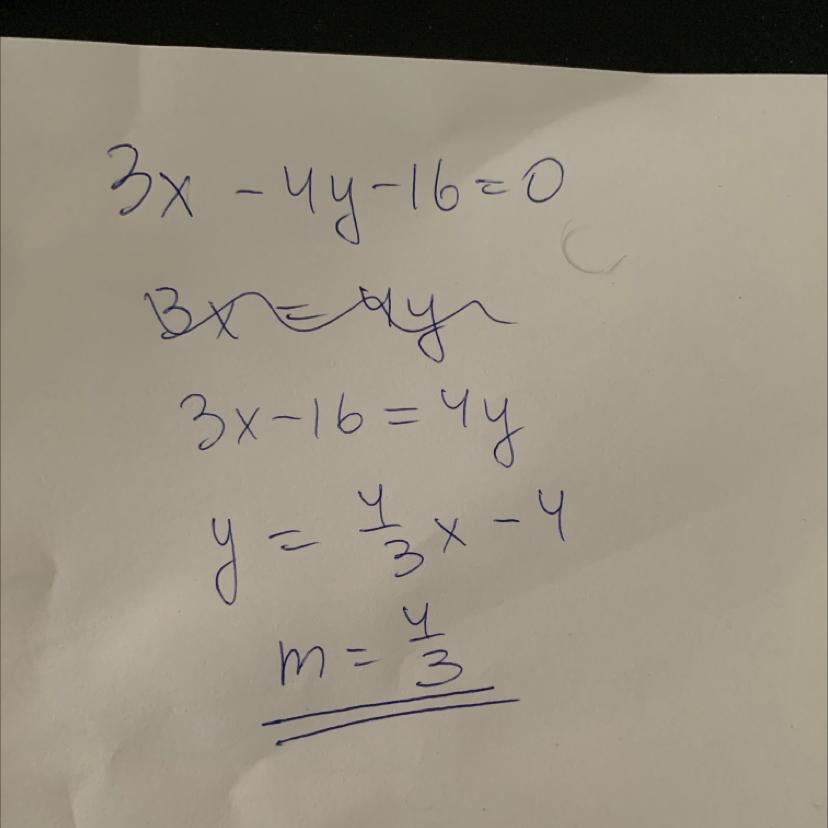 3x - 4y - 16 = 0
3x = 4y
3x - 16 = 4y
y = 4/3 x - 4
m = 4/3